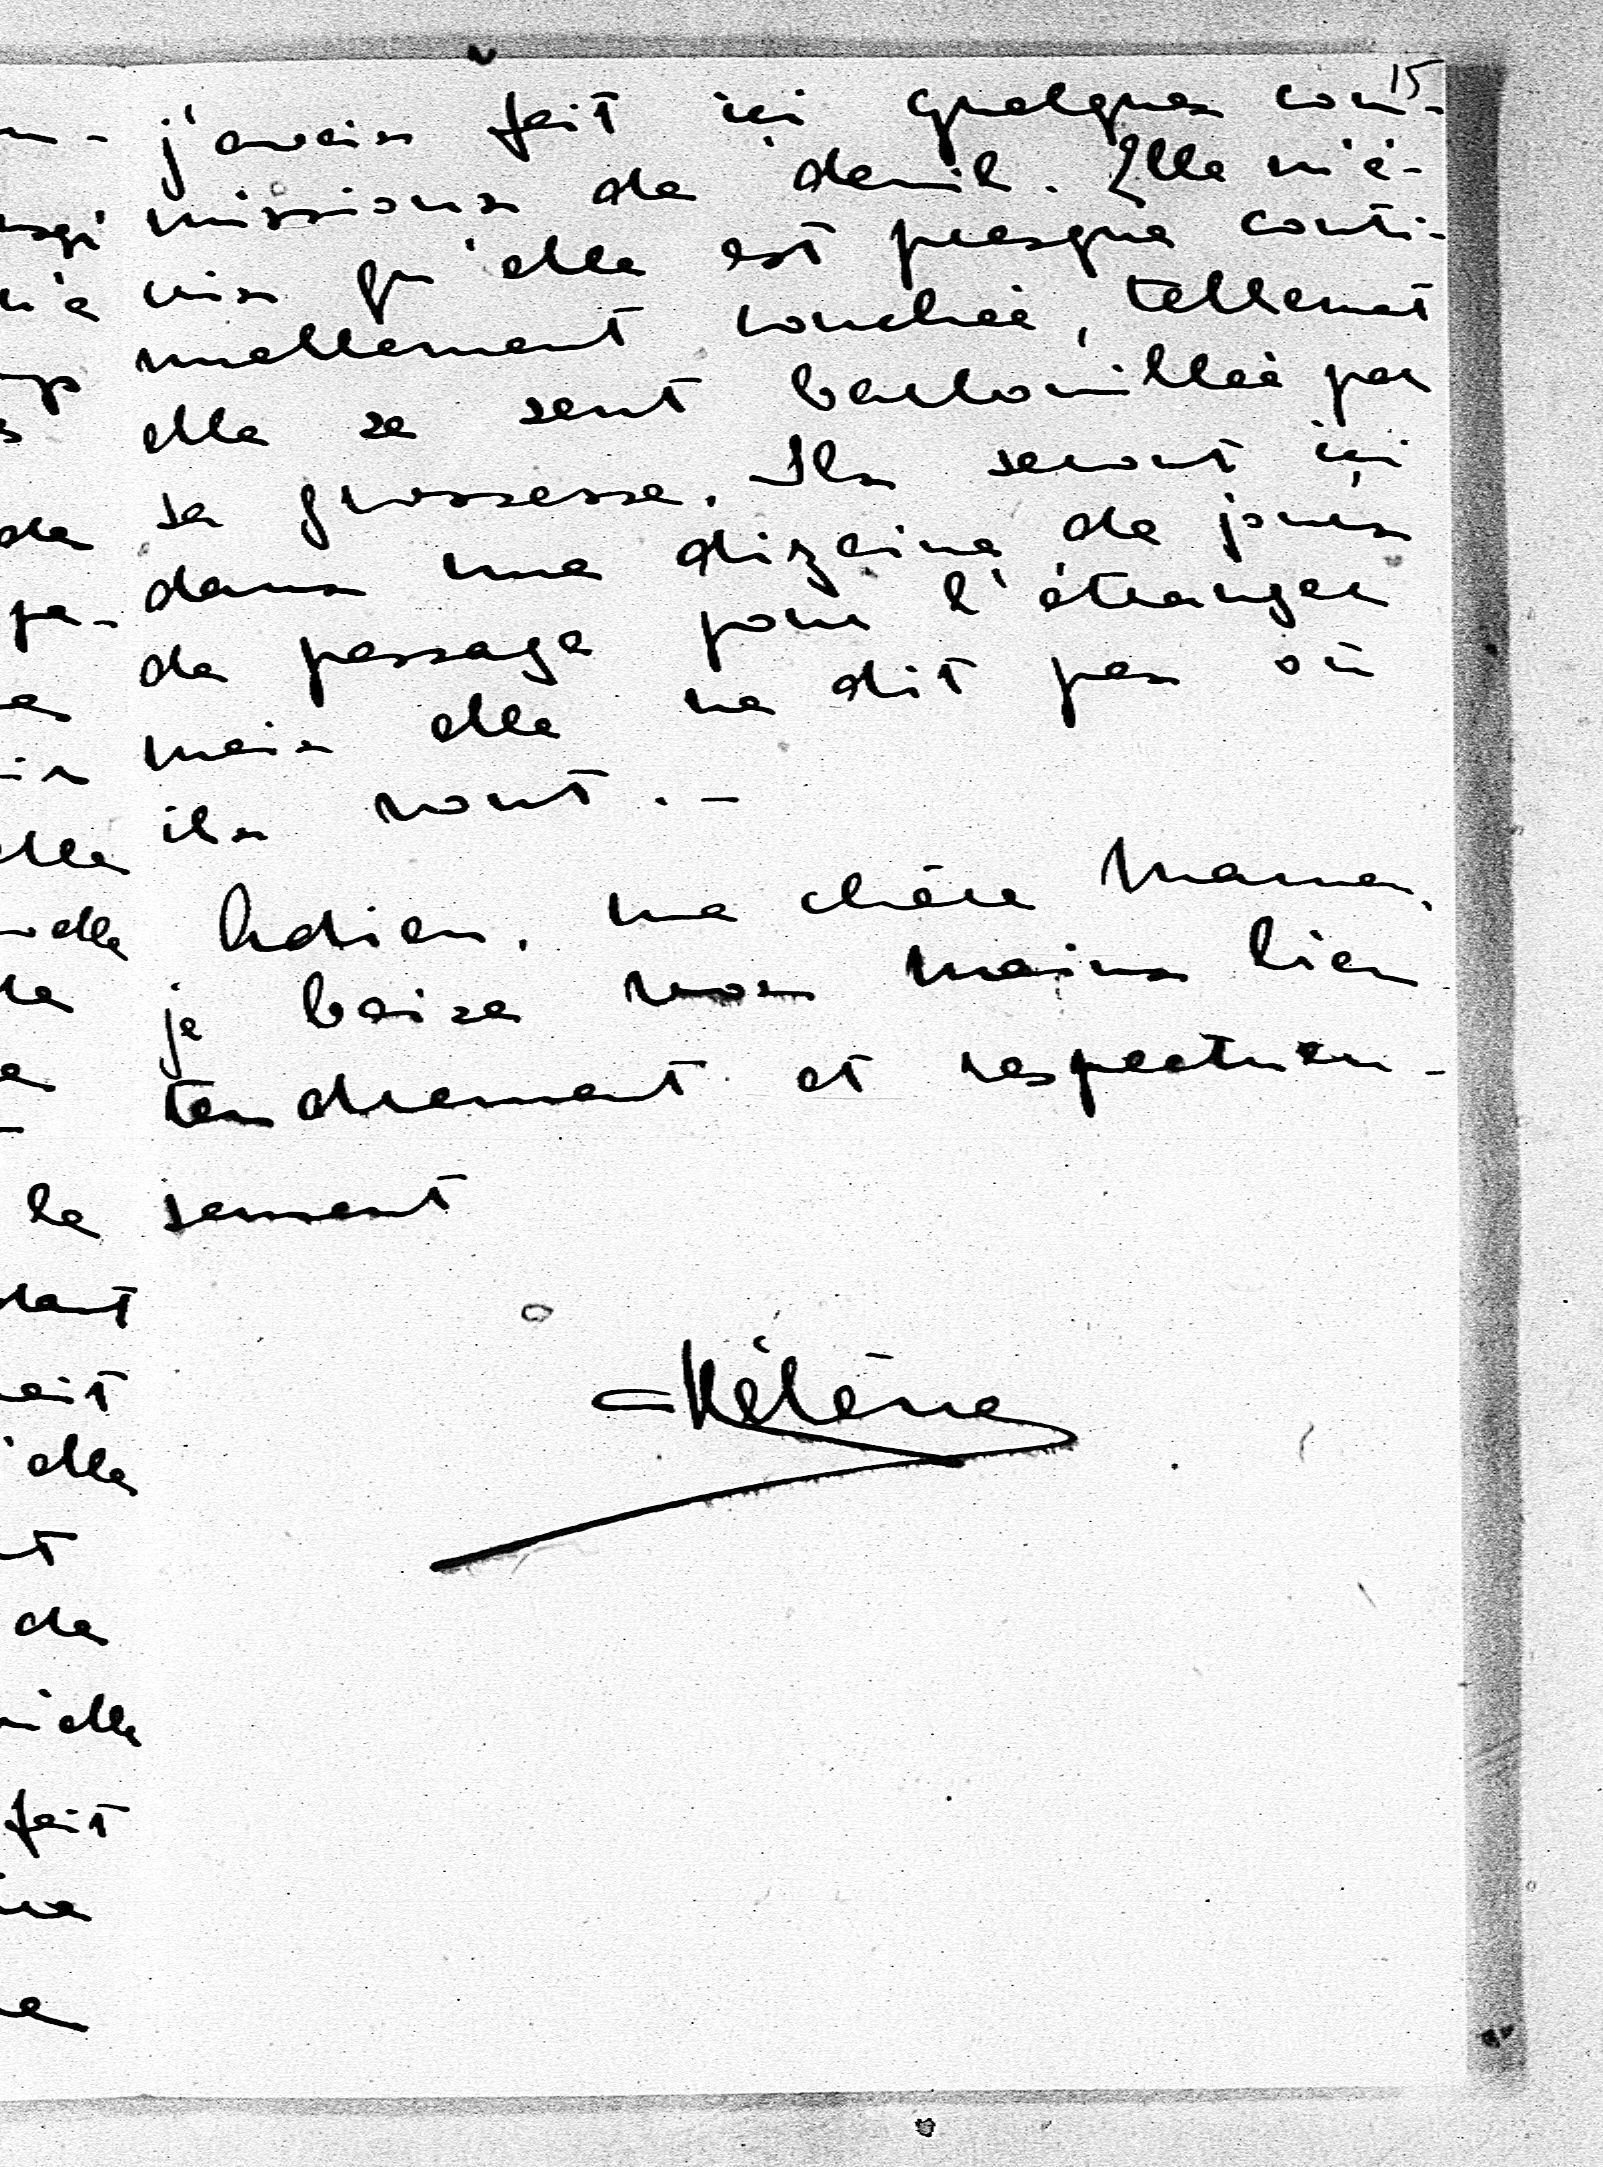 15
j'avais fait ici quelques com-
missions de deuil. Elle m'é-
cris qu'elle est presque conti-
nuellement couchée, tellement
elle se sent barbouillée par
sa grossesse. Ils seront ici
dans une dizaine de jours
de passage pour l'étranger
mais elle ne dit pas où
ils vont. -
Adieu, ma chère Maman,
je baise vos mains bien
tendrement et respectueu-
sement
Hélène
elle
de
le
dant
elle
de
fait